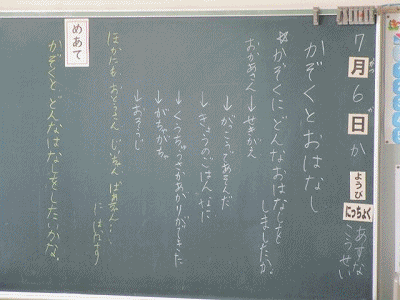 7月6日か
がつ
か
ようび
にっちょく
あすな
こうせい
かぞくとおはなし
☆かぞくにどんなおはなしを
しましたか。
おかあさん→せきがえ
→がっこうであそんだ
→きょうのごはんなに
→くうちゅうさかあがりができた
→がちゃがちゃ
→おそうじ
ほかにも おとうさん じいちゃん ばあちゃん…
にはなす
めあて
かぞくと、どんなはなしをしたいかな。